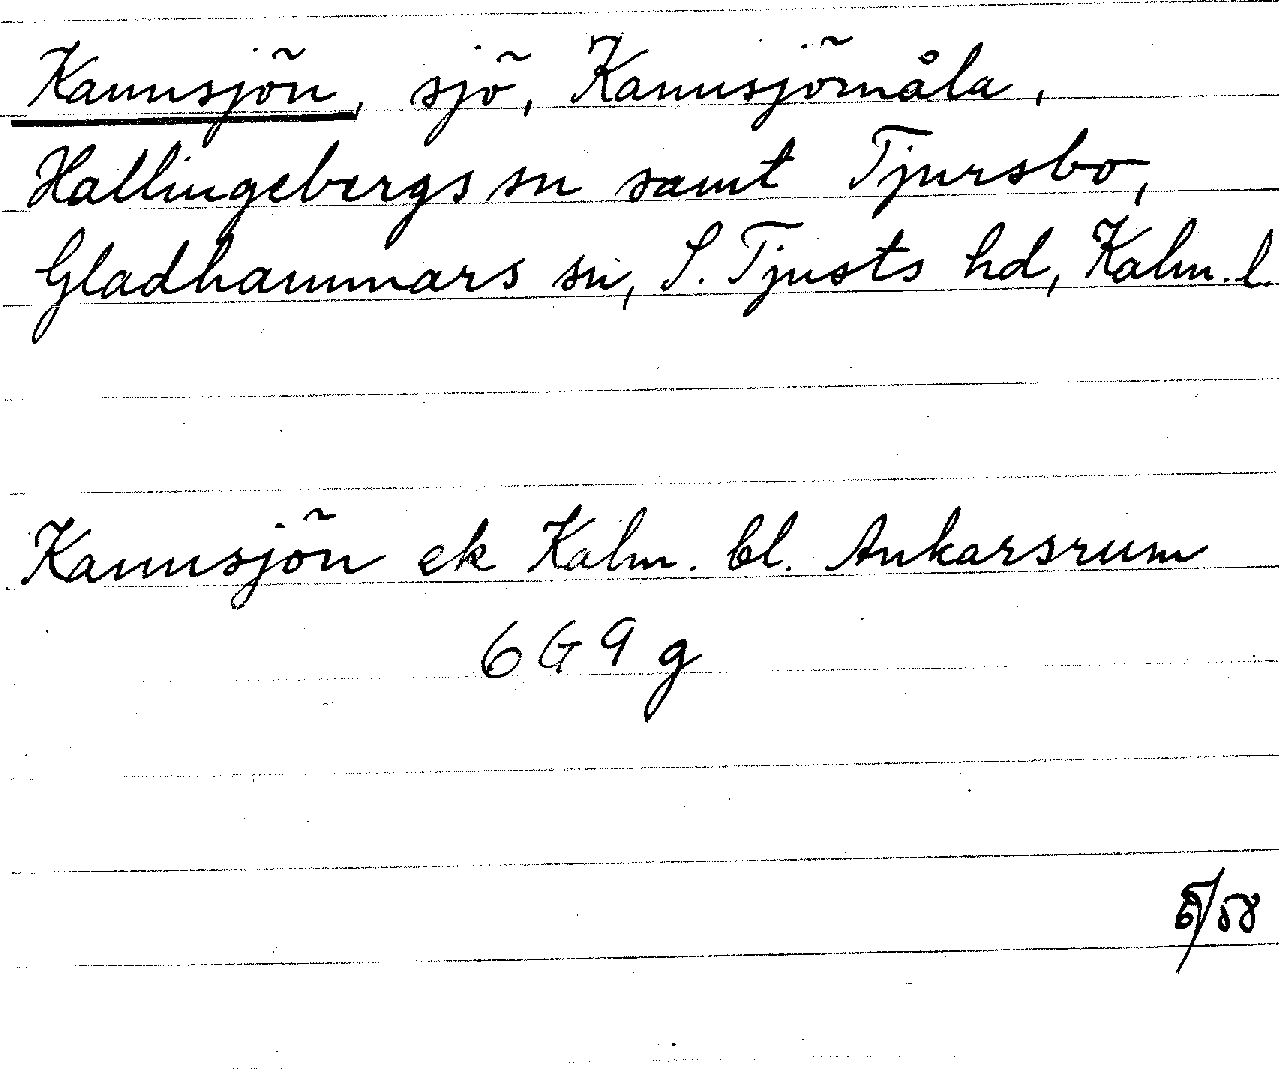 Kannsjön, sjö, Kannsjömåla,
Hallingebergs sn samt Tjursbo,
Gladhammars sn, S. Tjusts hd, Kalm. l.
Kannsjön ek Kalm. bl. Ankarsrum
6G9g